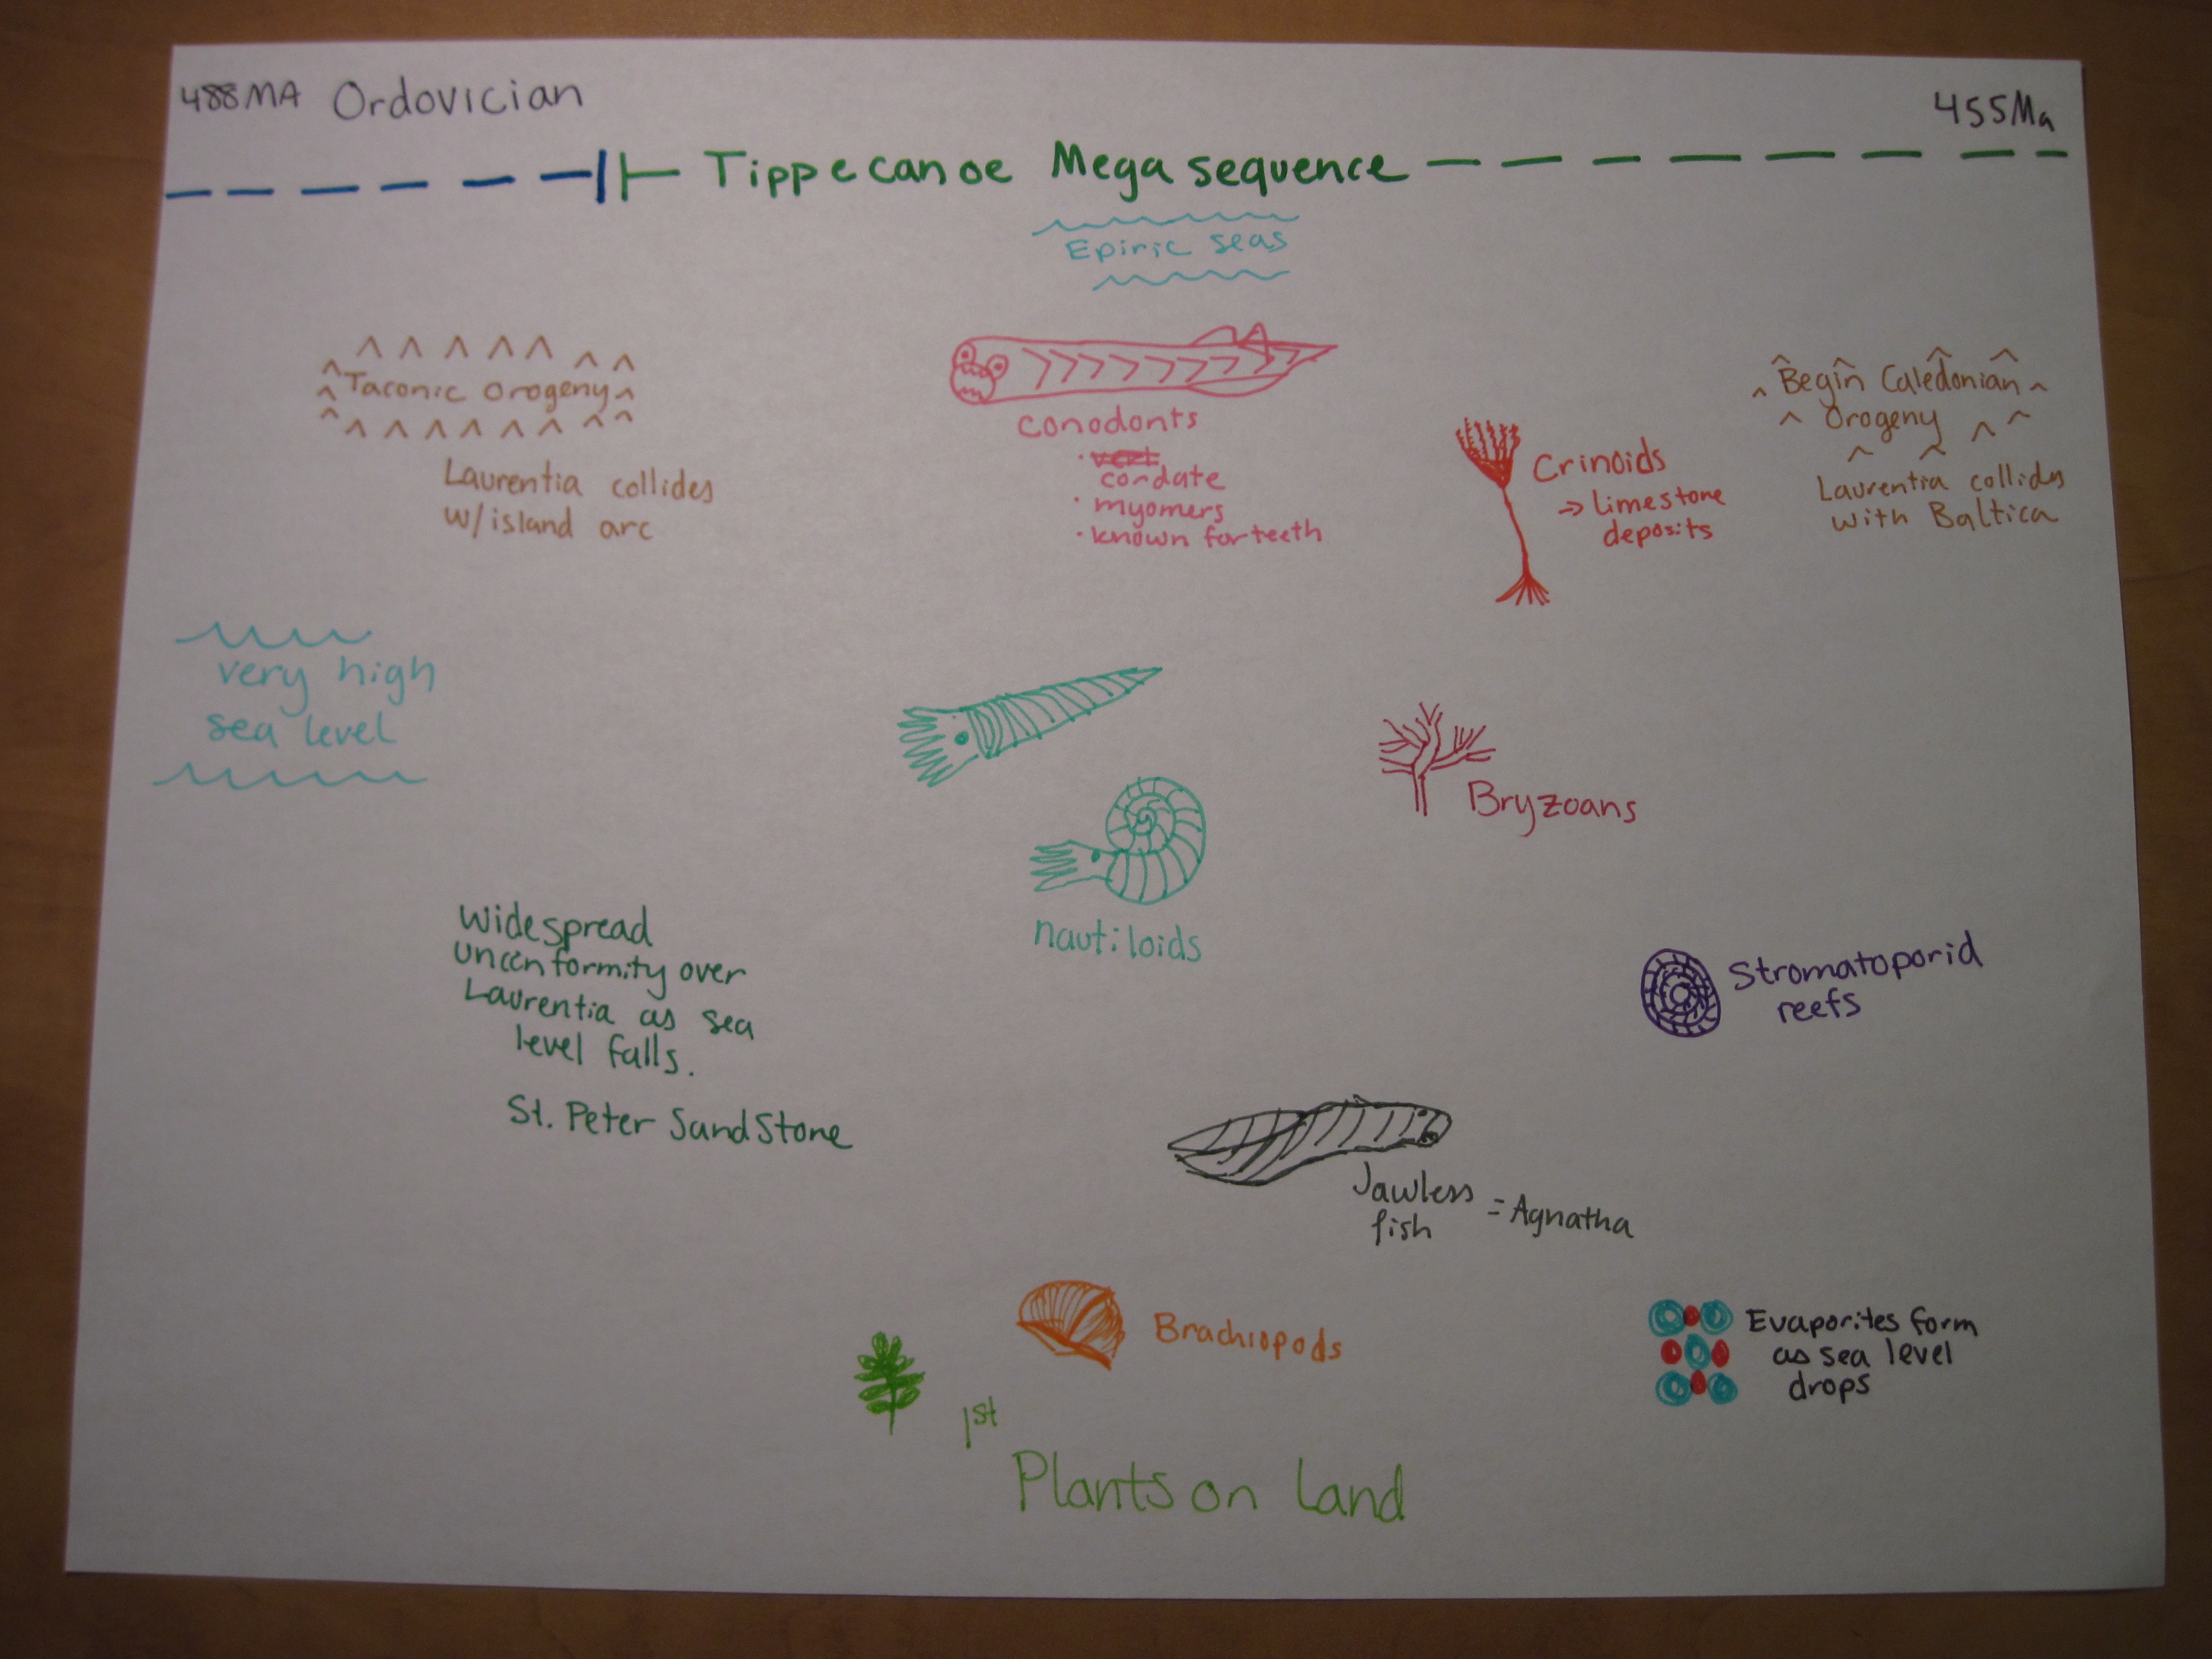 488MA Ordovician
455Ma
Tippecanoe Megasequence
Epiric seas
Taconic Orogeny
Laurentia collides
w/island arc
conodonts
· vert
cordate
· myomers
· known for teeth
Crinoids
→ limestone
deposits
Begin Caledonian
Orogeny
Laurentia collides
with Baltica
very high
sea level
nautiloids
Bryzoans
Widespread
unconformity over
Laurentia as sea
level falls.
St. Peter SandStone
Stromatoporid
reefs
Jawless
fish
= Agnatha
Brachiopods
Evaporites form
as sea level
drops
1st
Plants on Land